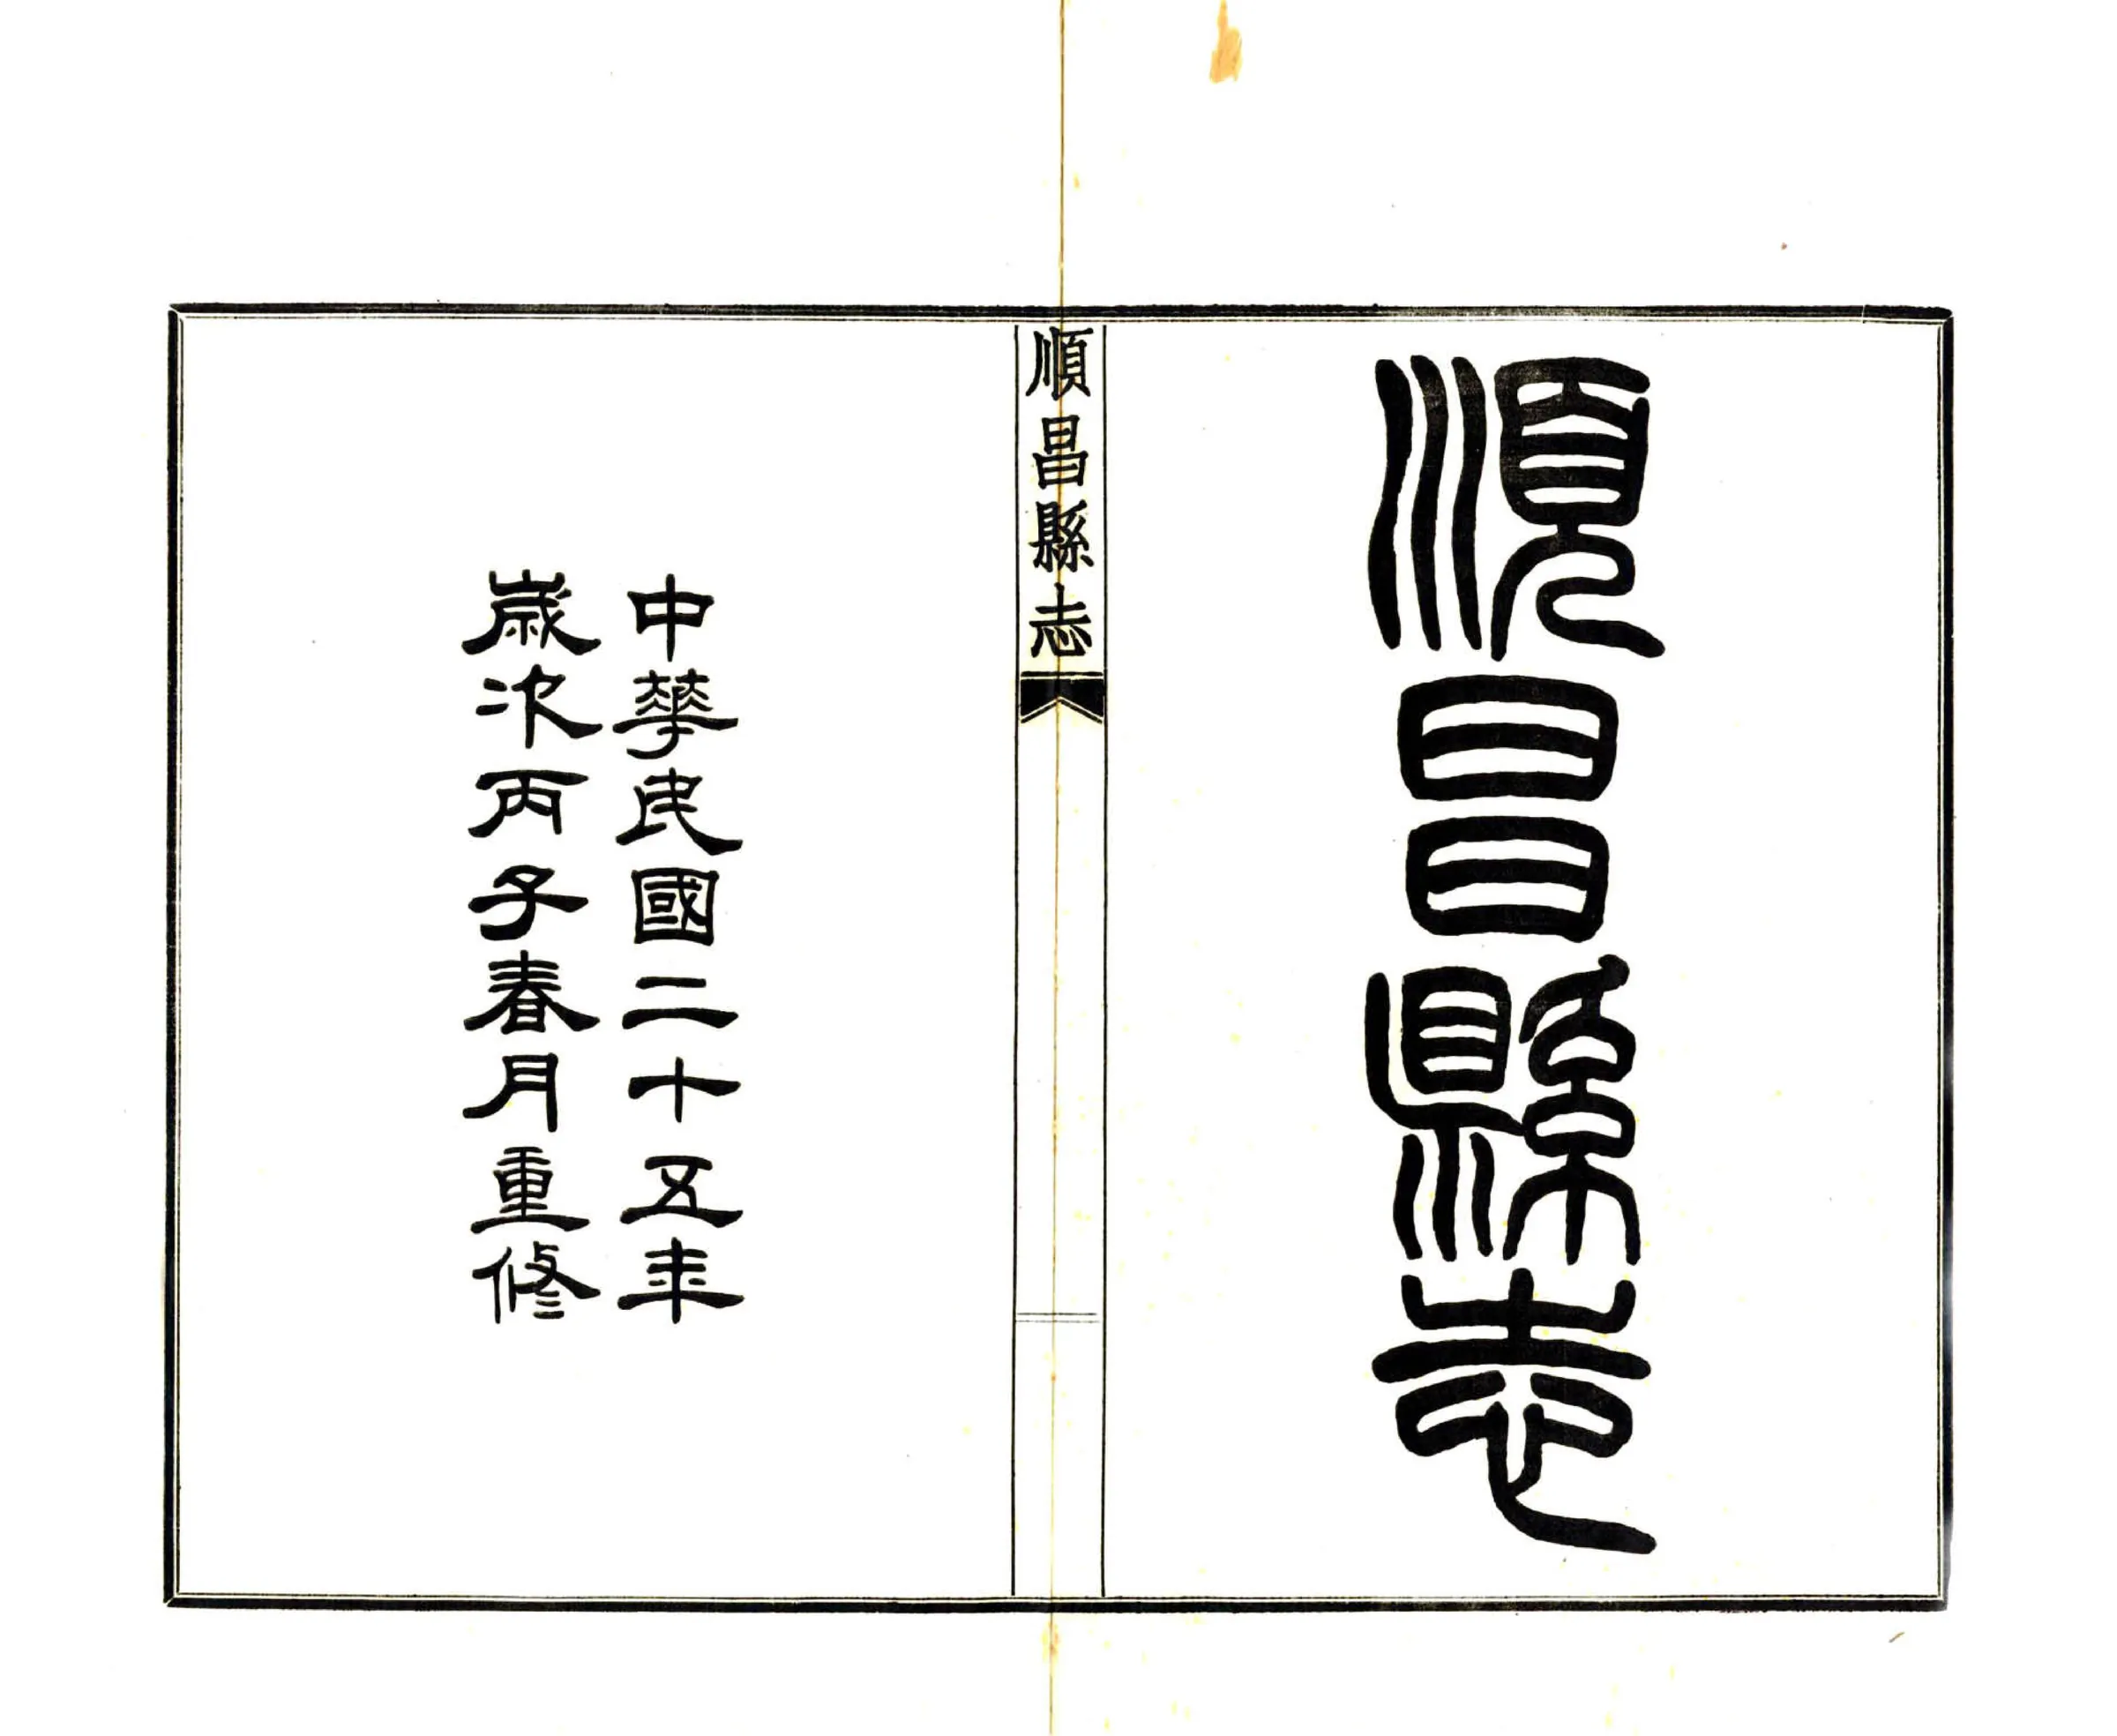 順昌縣志
順昌縣志
中華民國二十五年
歲次丙子春月重修